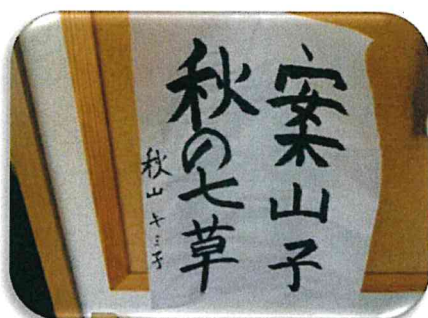 案山子
秋の七草
秋山キミ子